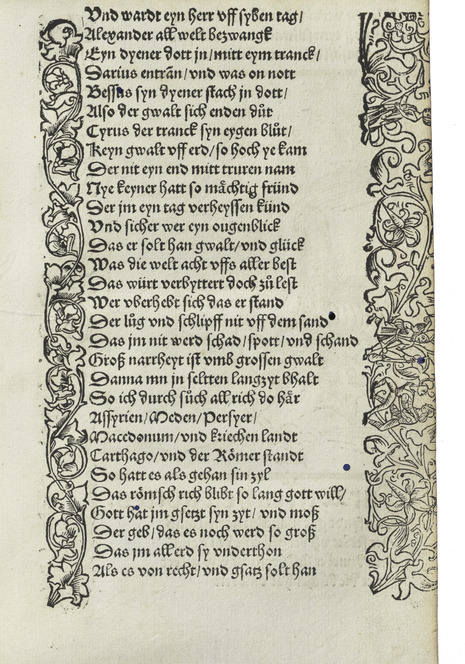 Vnd wardt eyn herr vff syben tag/
Alexander all welt bezwangk
Eyn dyener dott jn/mitt eym tranck/
Darius entrān/vnd was on nott
Bessus syn dyener stach jn dott/
Also der gwalt sich enden důt
Cyrus der tranck syn eygen blůt/
Keyn gwalt vff erd/so hoch ye kam
Der nit eyn end mitt truren nam
Nye keyner hatt so mächtig fründ
Der jm eyn tag verheyssen künd
Vnd sicher wer eyn ougenblick
Das er solt han gwalt/vnd glück
Was die welt acht vffs aller best
Das würt verbyttert doch zů lest
Wer vberhebt sich das er stand
Der lůg vnd schlipff nit vff dem sand
Das jm nit werd schad/spott/vnd schand
Groß narrheyt ist vmb grossen gwalt
Danna mn jn seltten langzyt bhalt
So ich durch sůch all rich do här
Assyrien/Meden/Persyer/
Macedonum/vnd kriechen landt
Carthago/vnd der Römer standt
So hatt es als gehan sin zyl
Das römsch rich blibt so lang gott will/
Gott hat jm gsetzt syn zyt/vnd moß
Der geb/das es noch werd so groß
Das jm all erd sy vnderthon
Als es von recht/vnd gsatz solt han